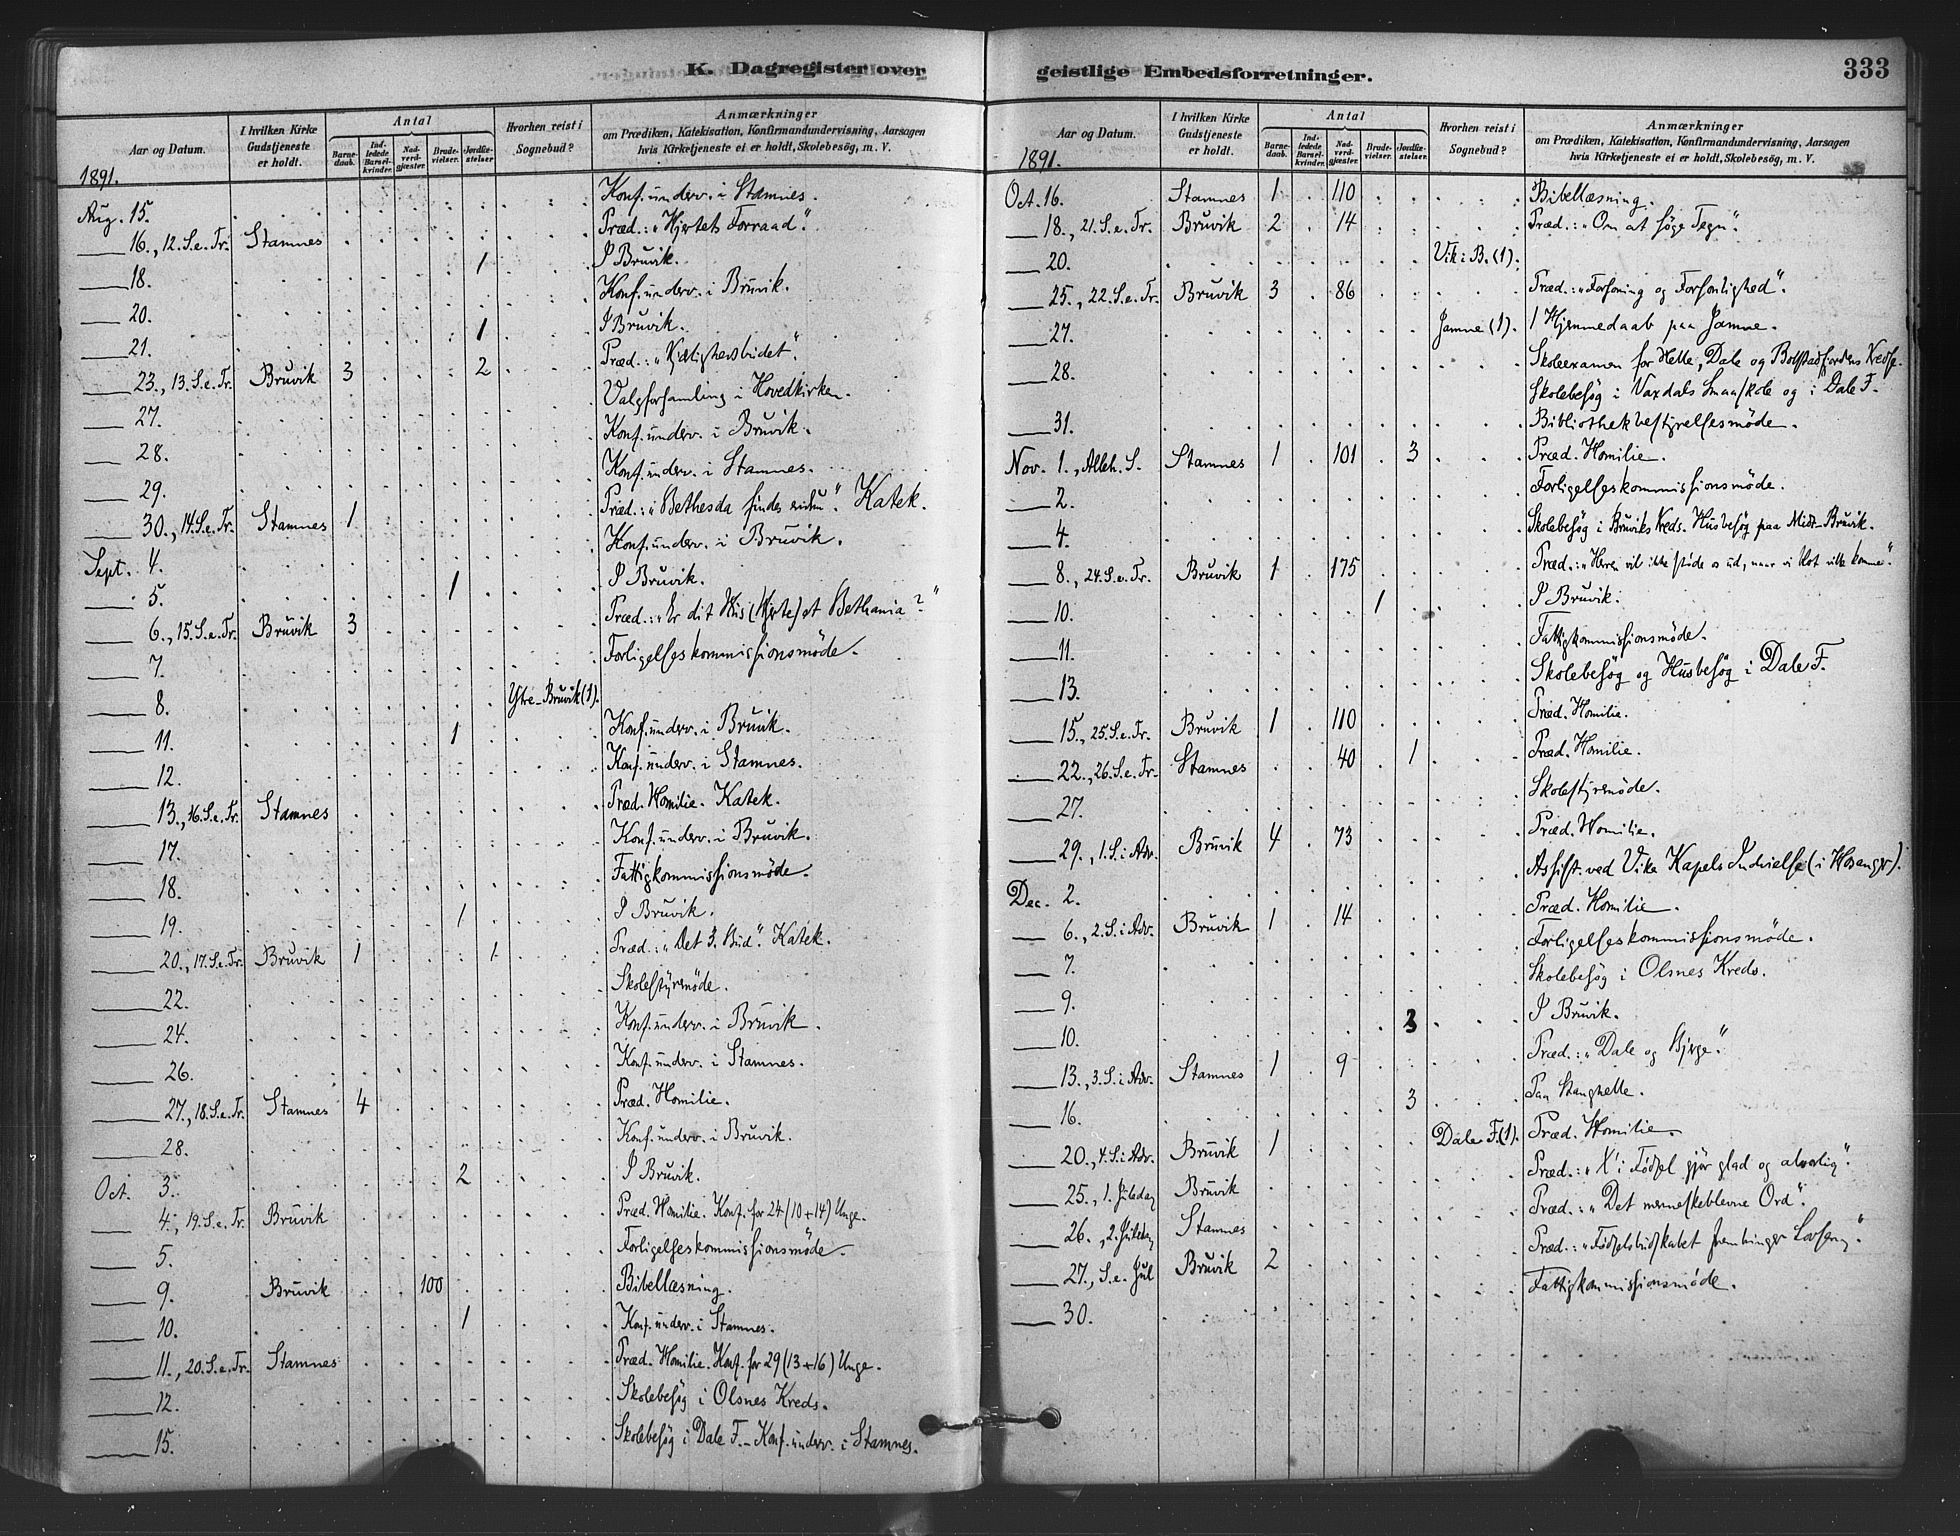 K. Dagregister over
Aar og Datum.
I hvilken Kirke Gudstjeneste er holdt.
Antal
Barnedaab.
Indledede Barselkvinder.
Nadverdgjæster.
Brudevielser.
Jordfæstelser
Hvorhen reist i Sognebud?
Anmærkninger
om Prædiken, Katekisation, Konfirmandundervisning, Aarsagen
hvis Kirketjeneste ei er holdt, Skolebesög, m. V.
1891.
Aug. 15. Konf. underv. i Stamnes.
16., 12. S. e. Tr. Stamnes Præd.: "Hjertets Forraad".
18. 1 I Bruvik.
20. Konf. underv. i Bruvik.
21. 1 I Bruvik.
23., 13. S. e. Tr. Bruvik 3 2 Præd.: "Kjærlighedsbudet".
27. Valgforsamling i Hovedkirken.
28. Konf. underv. i Bruvik.
29. Konf. underv. i Stamnes.
30., 14. S. e. Tr. Stamnes 1 Præd.: "Bethesda findes endnu". Katek.
Sept. 4. Konf. underv. i Bruvik.
5. 1 I Bruvik.
6., 15. S. e. Tr. Bruvik 3 Præd.: "Er dit Hus (Hjerte) et Bethania?"
7. Forligelseskommissionsmöde.
8. Ytre-Bruvik (1).
11. 1 Konf. underv. i Bruvik.
12. Konf. underv. i Stamnes.
13., 16. S. e. Tr. Stamnes Præd. Homilie. Katek.
17. Konf. underv. i Bruvik.
18. Fattigkommissionsmöde.
19. 1 I Bruvik.
20., 17. S. e. Tr. Bruvik 1 1 Præd.: "Det 3. Bud". Katek.
22. Skolestyremöde.
24. Konf. underv. i Bruvik.
26. Konf. underv. i Stamnes.
27., 18. S. e. Tr. Stamnes 4 Præd. Homilie.
28. Konf. underv. i Bruvik.
Oct. 3. 2 I Bruvik.
4., 19. S. e. Tr. Bruvik Præd. Homilie. Konf. for 24 (10 + 14) Unge.
5. Forligelseskommissionsmöde.
9. Bruvik 100 Bibellæsning.
10. 1 Konf. underv. i Stamnes.
11., 20. S. e. Tr. Stamnes Præd. Homilie. Konf. for 29 (13 + 16) Unge.
12. Skolebesög i Olsnes Kreds.
15. Skolebesög i Dale F. - Konf. underv. i Stamnes.
geistlige Embedsforretninger.
333
Aar og Datum.
I hvilken Kirke Gudstjeneste er holdt.
Antal
Barnedaab.
Indledede Barselkvinder.
Nadverdgjæster.
Brudevielser.
Jordfæstelser
Hvorhen reist i Sognebud?
Anmærkninger
om Prædiken, Katekisation, Konfirmandundervisning, Aarsagen
hvis Kirketjeneste ei er holdt, Skolebesög, m. V.
1891.
Oct. 16. Stamnes 1 110 Bibellæsning.
18., 21. S. e. Tr. Bruvik 2 14 Præd.: "Om at söge Tegn".
20. Vik i B. (1).
25., 22. S. e. Tr. Bruvik 3 86 Præd.: "Forsoning og Forsonlighed".
27. Jamne (1). 1 Hjemmedaab paa Jamne.
28. Skoleexamen for Helle, Dale og Bolstadfjordens Kredse.
Skolebesög i Vaxdals Smaaskole og i Dale F.
31. Bibliothekbestyrelsesmöde.
Nov. 1., Alleh. S. Stamnes 1 101 3 Præd. Homilie.
2. Forligelseskommissionsmöde.
4. Skolebesög i Bruviks Kreds. Husbesög paa Midt-Bruvik.
8., 24. S. e. Tr. Bruvik 1 175 Præd.: "Herren vil ikke støde os ud, naar vi blot ville komme".
10. 1 I Bruvik.
11. Fattigkommissionsmöde.
13. Skolebesög og Husbesög i Dale F.
15., 25. S. e. Tr. Bruvik 1 110 Præd. Homilie.
22., 26. S. e. Tr. Stamnes 40 1 Præd. Homilie.
27. Skolestyremöde.
29., 1. S. i Adv. Bruvik 4 73 Præd. Homilie.
Dec. 2. Assist. ved Vike Kapels Indvielse (i Hosanger).
6., 2. S. i Adv. Bruvik 1 14 Præd. Homilie.
7. Forligelseskommissionsmöde.
9. Skolebesög i Olsnes Kreds.
10. I Bruvik.
13., 3. S. i Adv. Stamnes 1 9 Præd.: "Dale og Bjerge".
16. 3 Paa Stanghelle.
20., 4. S. i Adv. Bruvik 1 Dale F. (1). Præd. Homilie.
25., 1. Juledag Bruvik Præd.: "X'i Födsel gjör glad og alvorlig".
26., 2. Juledag Stamnes Præd.: "Det menneskeblevne Ord".
27., S. e. Jul Bruvik 2 Præd.: "Födselsbudskabet frembringer Lovsang".
30. Fattigkommissionsmöde.